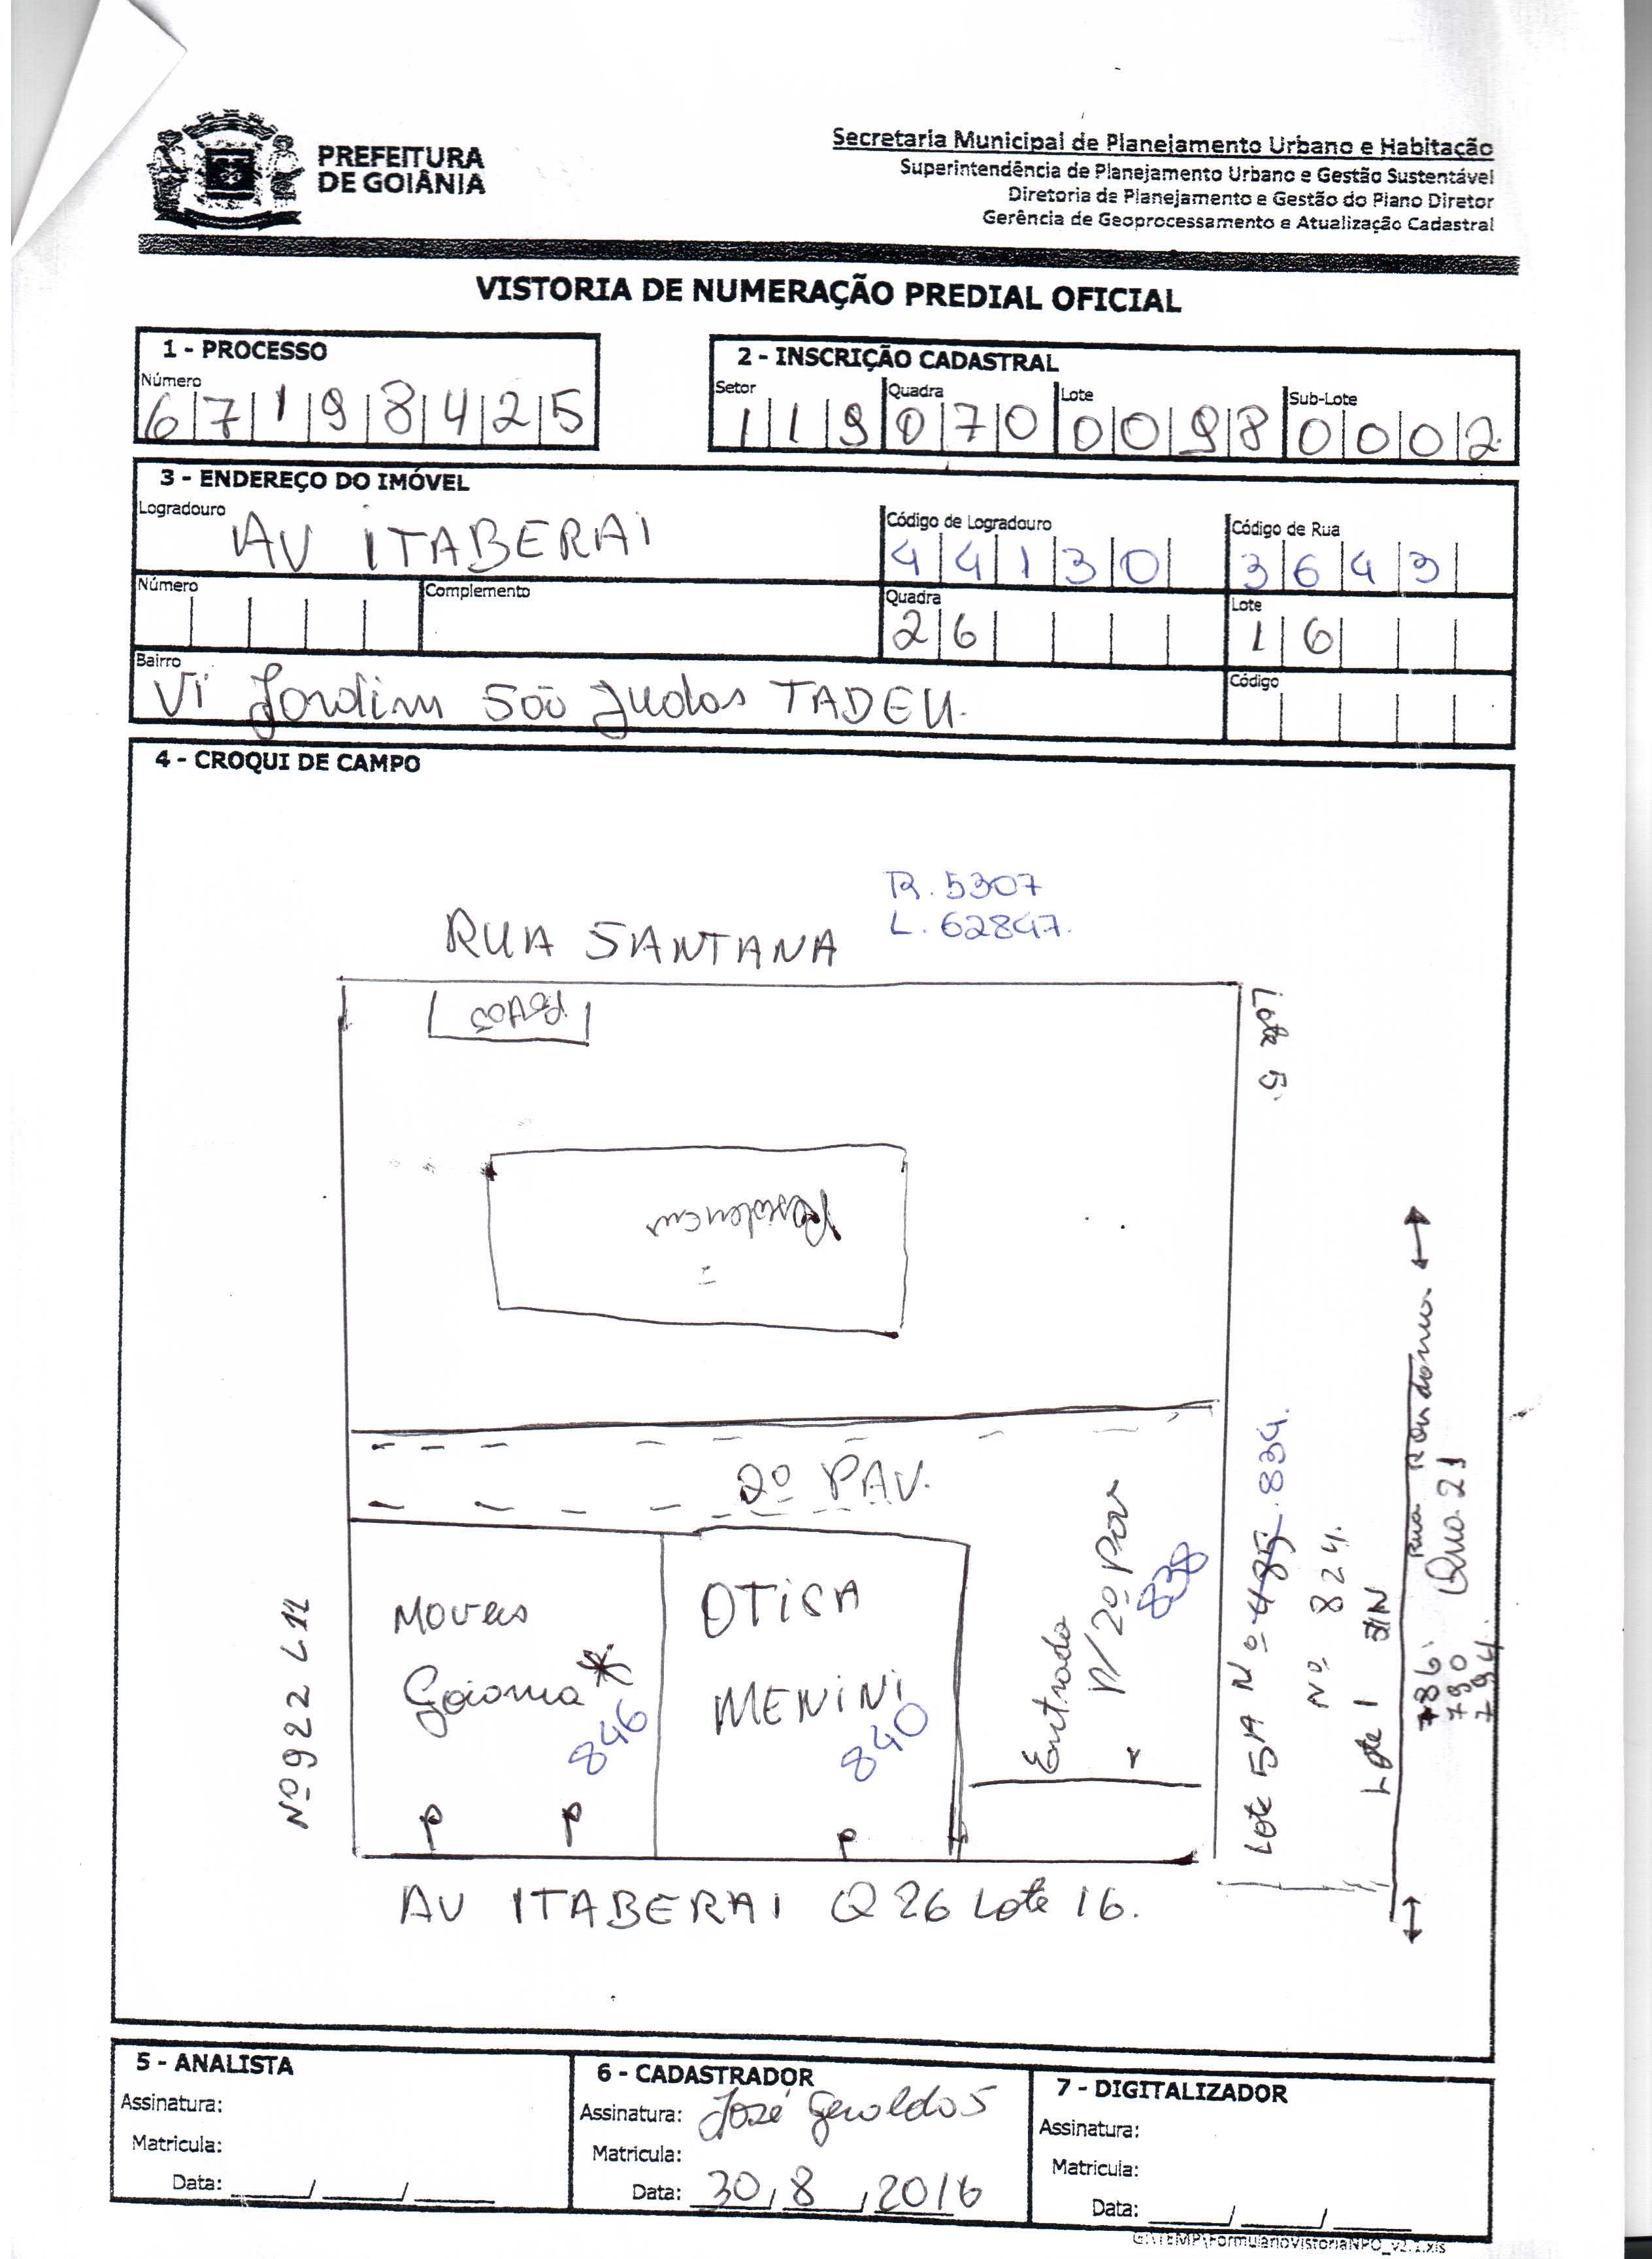 PREFEITURA
DE GOIÂNIA
Secretaria Municipal de Planejamento Urbano e Habitação
Superintendência de Planejamento Urbano e Gestão Sustentável
Diretoria de Planejamento e Gestão do Plano Diretor
Gerência de Geoprocessamento e Atualização Cadastral
VISTORIA DE NUMERAÇÃO PREDIAL OFICIAL
1 - PROCESSO
Número
67198425
2 - INSCRIÇÃO CADASTRAL
Setor Quadra Lote Sub-Lote
119 070 0098 0002
3 - ENDEREÇO DO IMÓVEL
Logradouro AV ITABERAI
Código de Logradouro 44130
Código de Rua 3649
Número
Complemento
Quadra 26
Lote 16
Bairro
Vi Jardim São Judas TADEU.
Código
4 - CROQUI DE CAMPO
R. 5307
L. 62847.
RUA SANTANA
Lote 5
Residencia
2º PAV.
MOVEIS
Goiania *
846
OTICA
MENINI
840
Entrada
P/2º Pav
838
Nº 922 L11
Lote 5A Nº 485 834.
Nº 824.
Lote 1 S/N
Rua Rondônia
Qua. 21
786.
790
794.
AV ITABERAI Q 26 Lote 16.
5 - ANALISTA
Assinatura:
Matricula:
Data: ____/____/____
6 - CADASTRADOR
Assinatura: José Geraldo S
Matricula:
Data: 30/8/2016
7 - DIGITALIZADOR
Assinatura:
Matricula:
Data: ____/____/____
G:\TEMP\FormularioVistoriaNPO_v2.1.xls